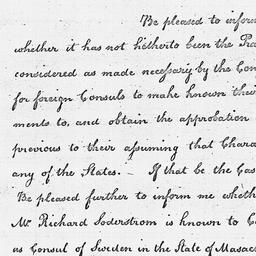 Be pleased to inform
whether it has not hitherto been the Pra
considered as made necessary by the Con
for foreign Consuls to make known their
ments to, and obtain the approbation
previous to their assuming that Chara
any of the States. — If that be the Cas
Be pleased further to inform me wheth
Mr Richard Soderstrom is known to C
as Consul of Sweden in the State of Massac